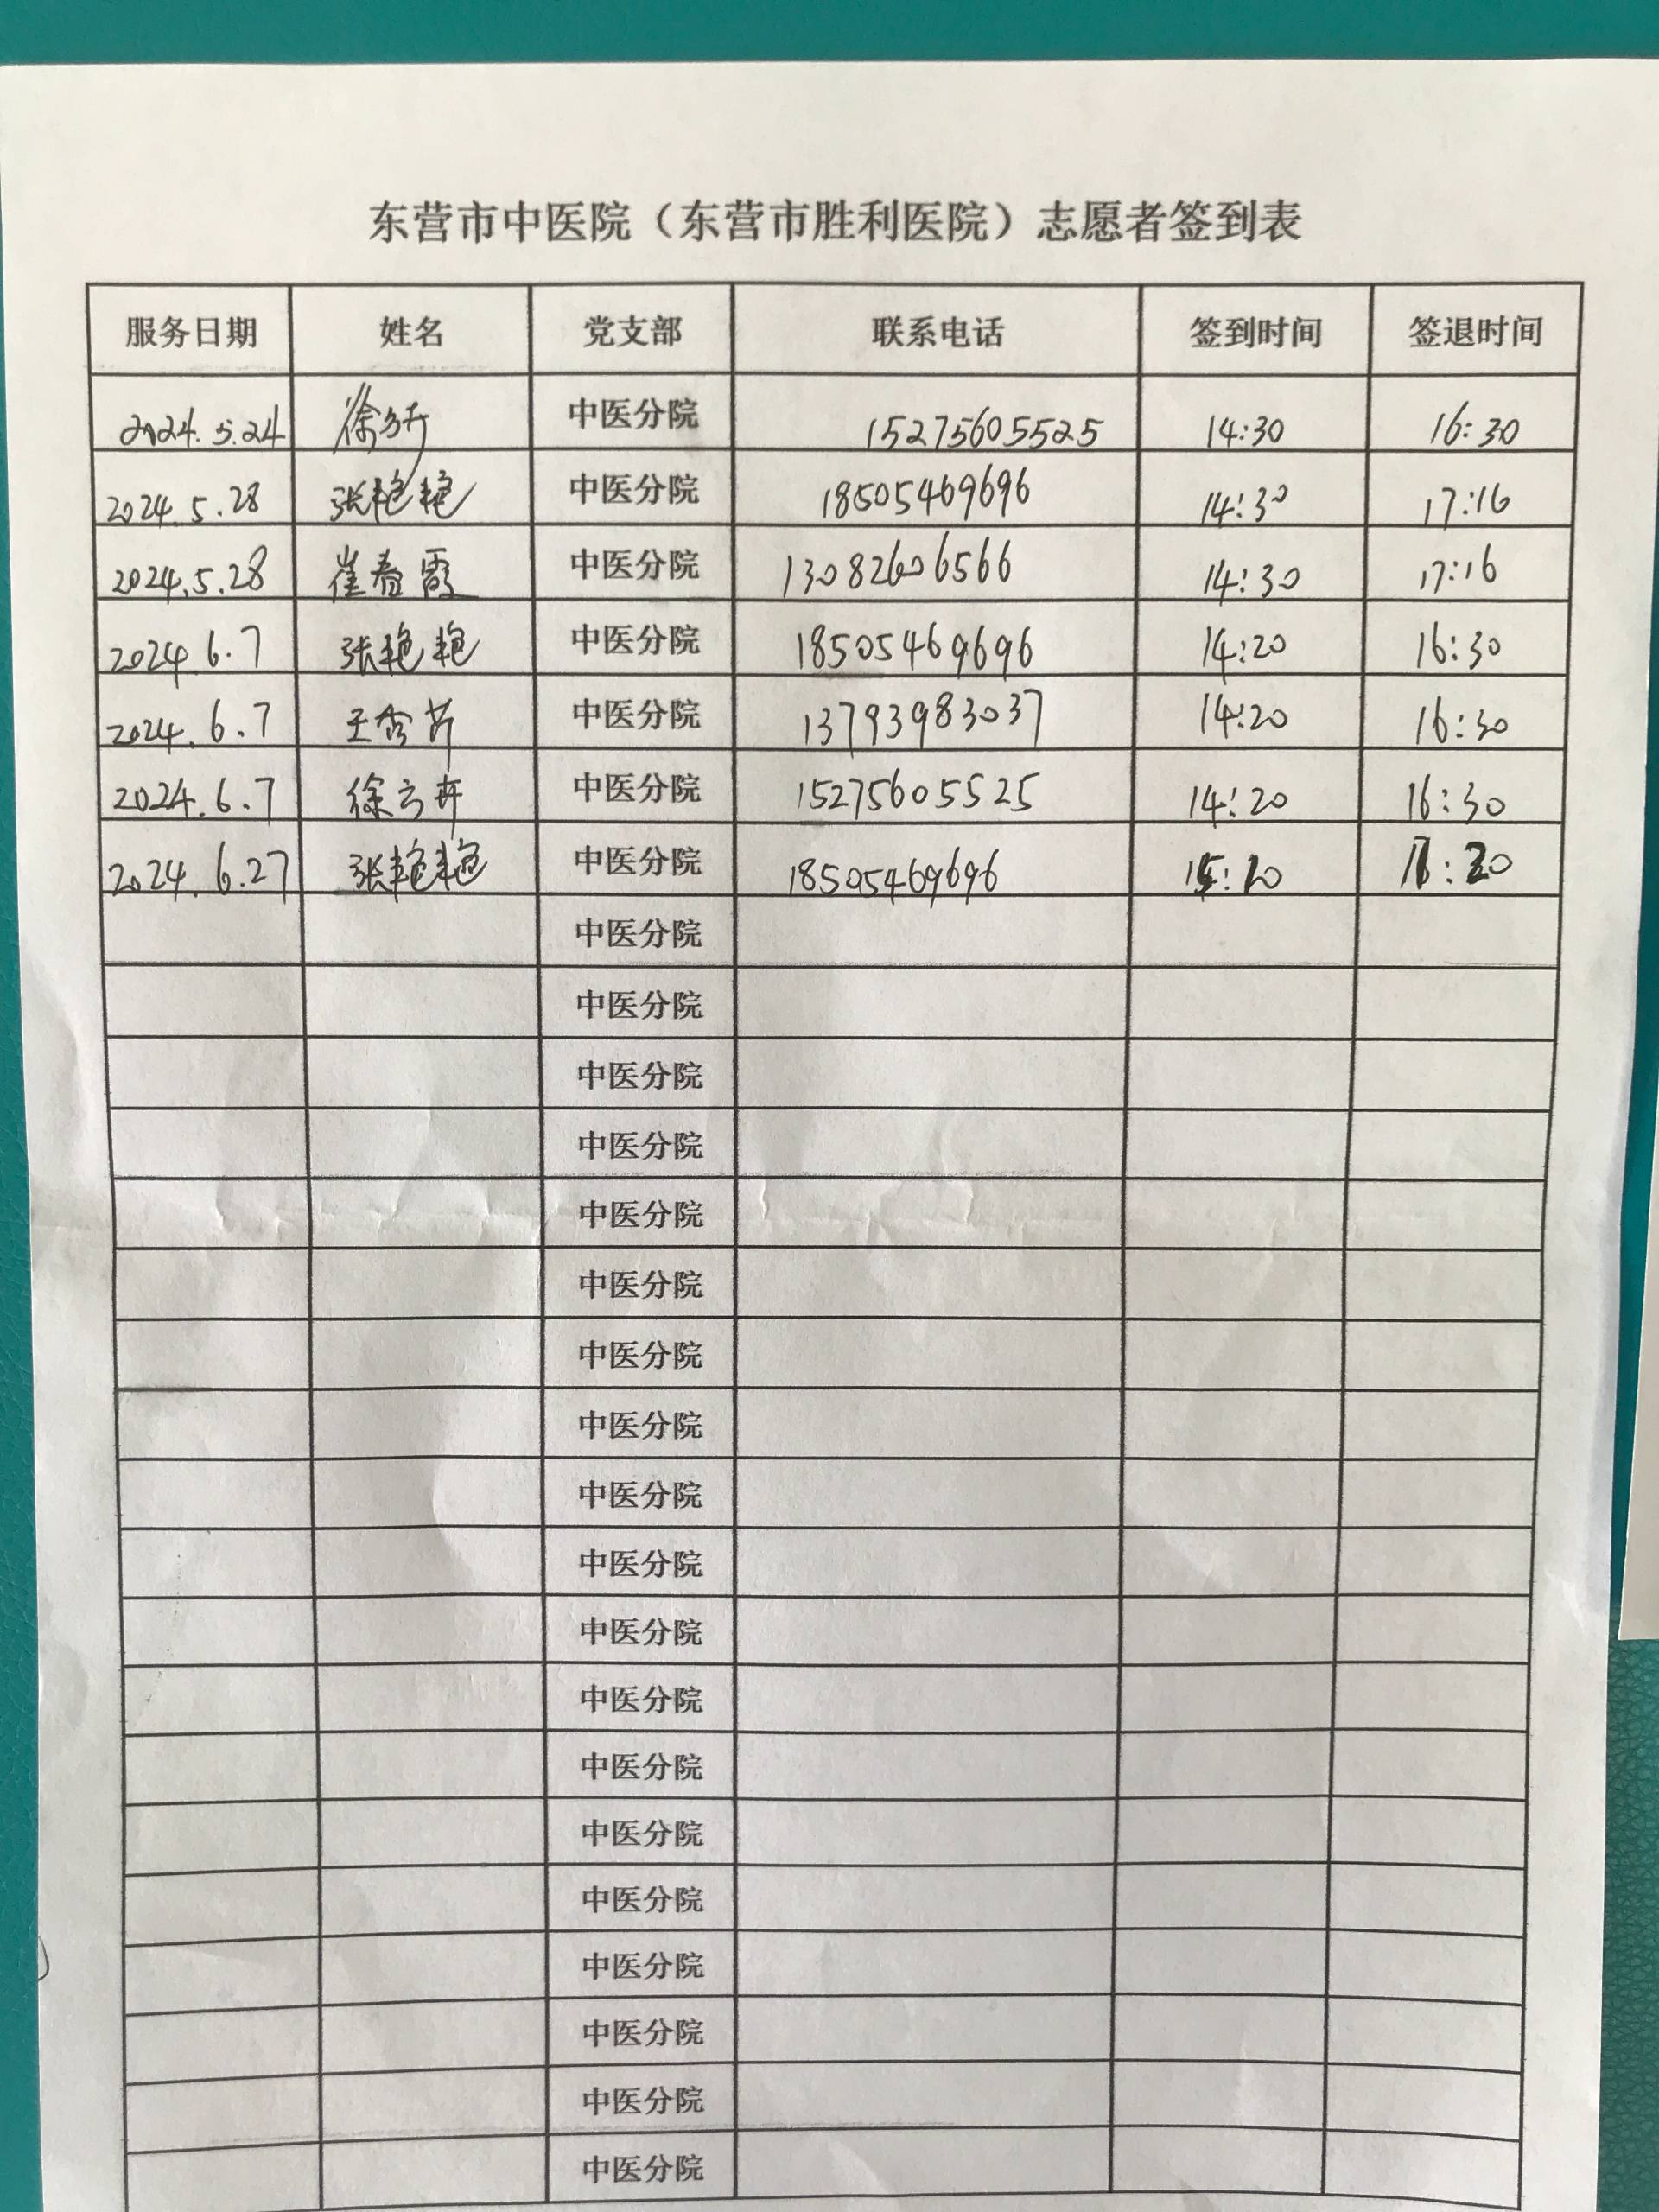 东营市中医院（东营市胜利医院）志愿者签到表
服务日期 姓名 党支部 联系电话 签到时间 签退时间
2024.5.24 徐 中医分院 15275605525 14:30 16:30
2024.5.28 张艳艳 中医分院 18505469696 14:30 17:16
2024.5.28 崔春霞 中医分院 13082606566 14:30 17:16
2024.6.7 张艳艳 中医分院 18505469696 14:20 16:30
2024.6.7 王 中医分院 13793983037 14:20 16:30
2024.6.7 徐 中医分院 15275605525 14:20 16:30
2024.6.27 张艳艳 中医分院 18505469696
中医分院
中医分院
中医分院
中医分院
中医分院
中医分院
中医分院
中医分院
中医分院
中医分院
中医分院
中医分院
中医分院
中医分院
中医分院
中医分院
中医分院
中医分院
中医分院